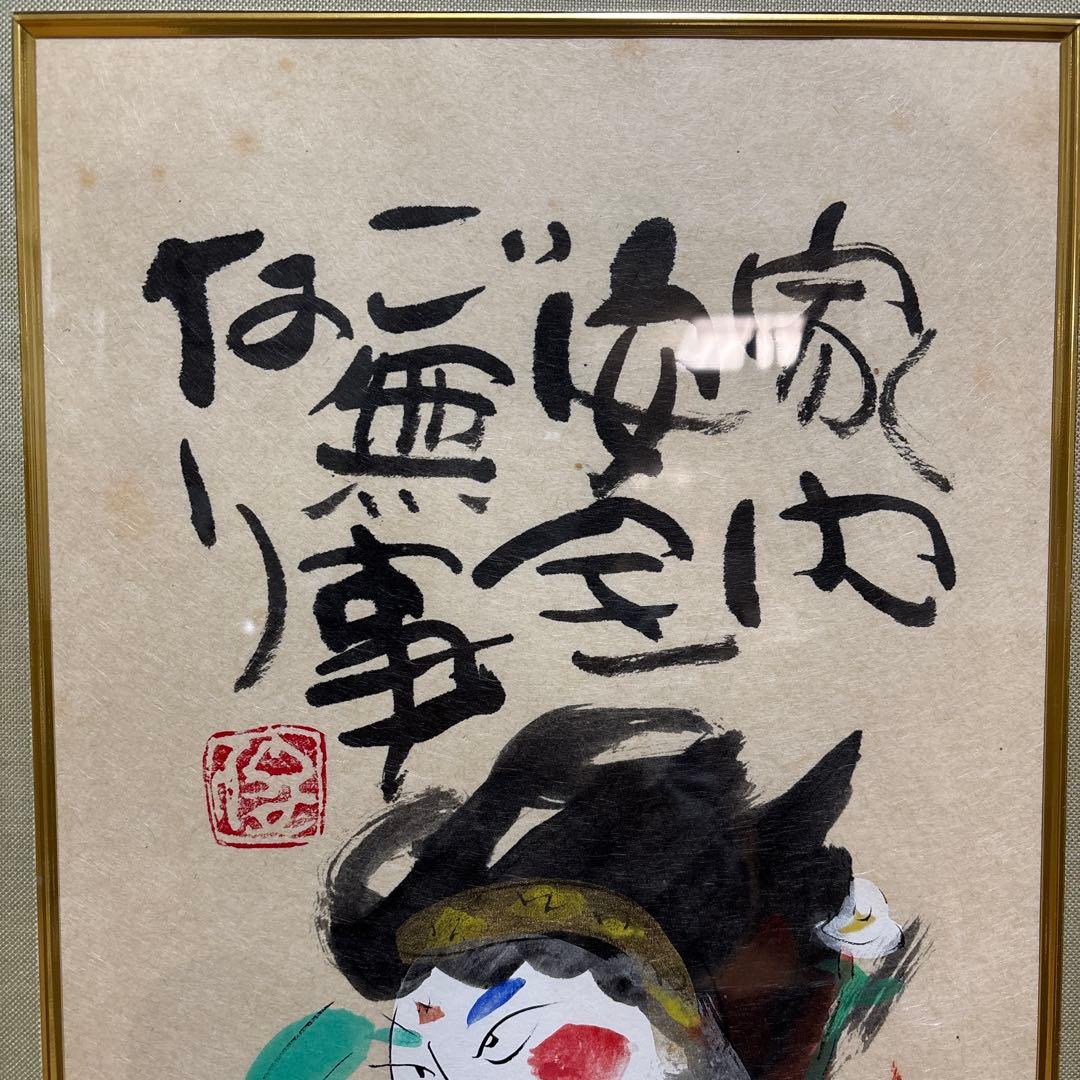 家内
安全
ご無事
なり